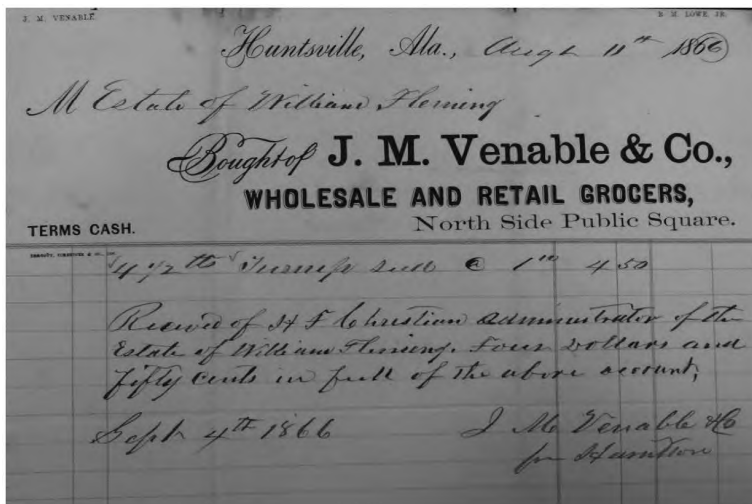 J. M. VENABLE B. M. LOWE, JR.
Huntsville, Ala., Augt 11th 1866
M Estate of William Fleming
Bought of J. M. Venable & Co.,
WHOLESALE AND RETAIL GROCERS,
TERMS CASH. North Side Public Square.
4 1/2 lb Turnip seed @ 1.00 4 50
Received of H F Christian administrator of the
Estate of William Fleming. Four Dollars and
fifty cents in full of the above account,
Sept 4th 1866 J M Venable & Co